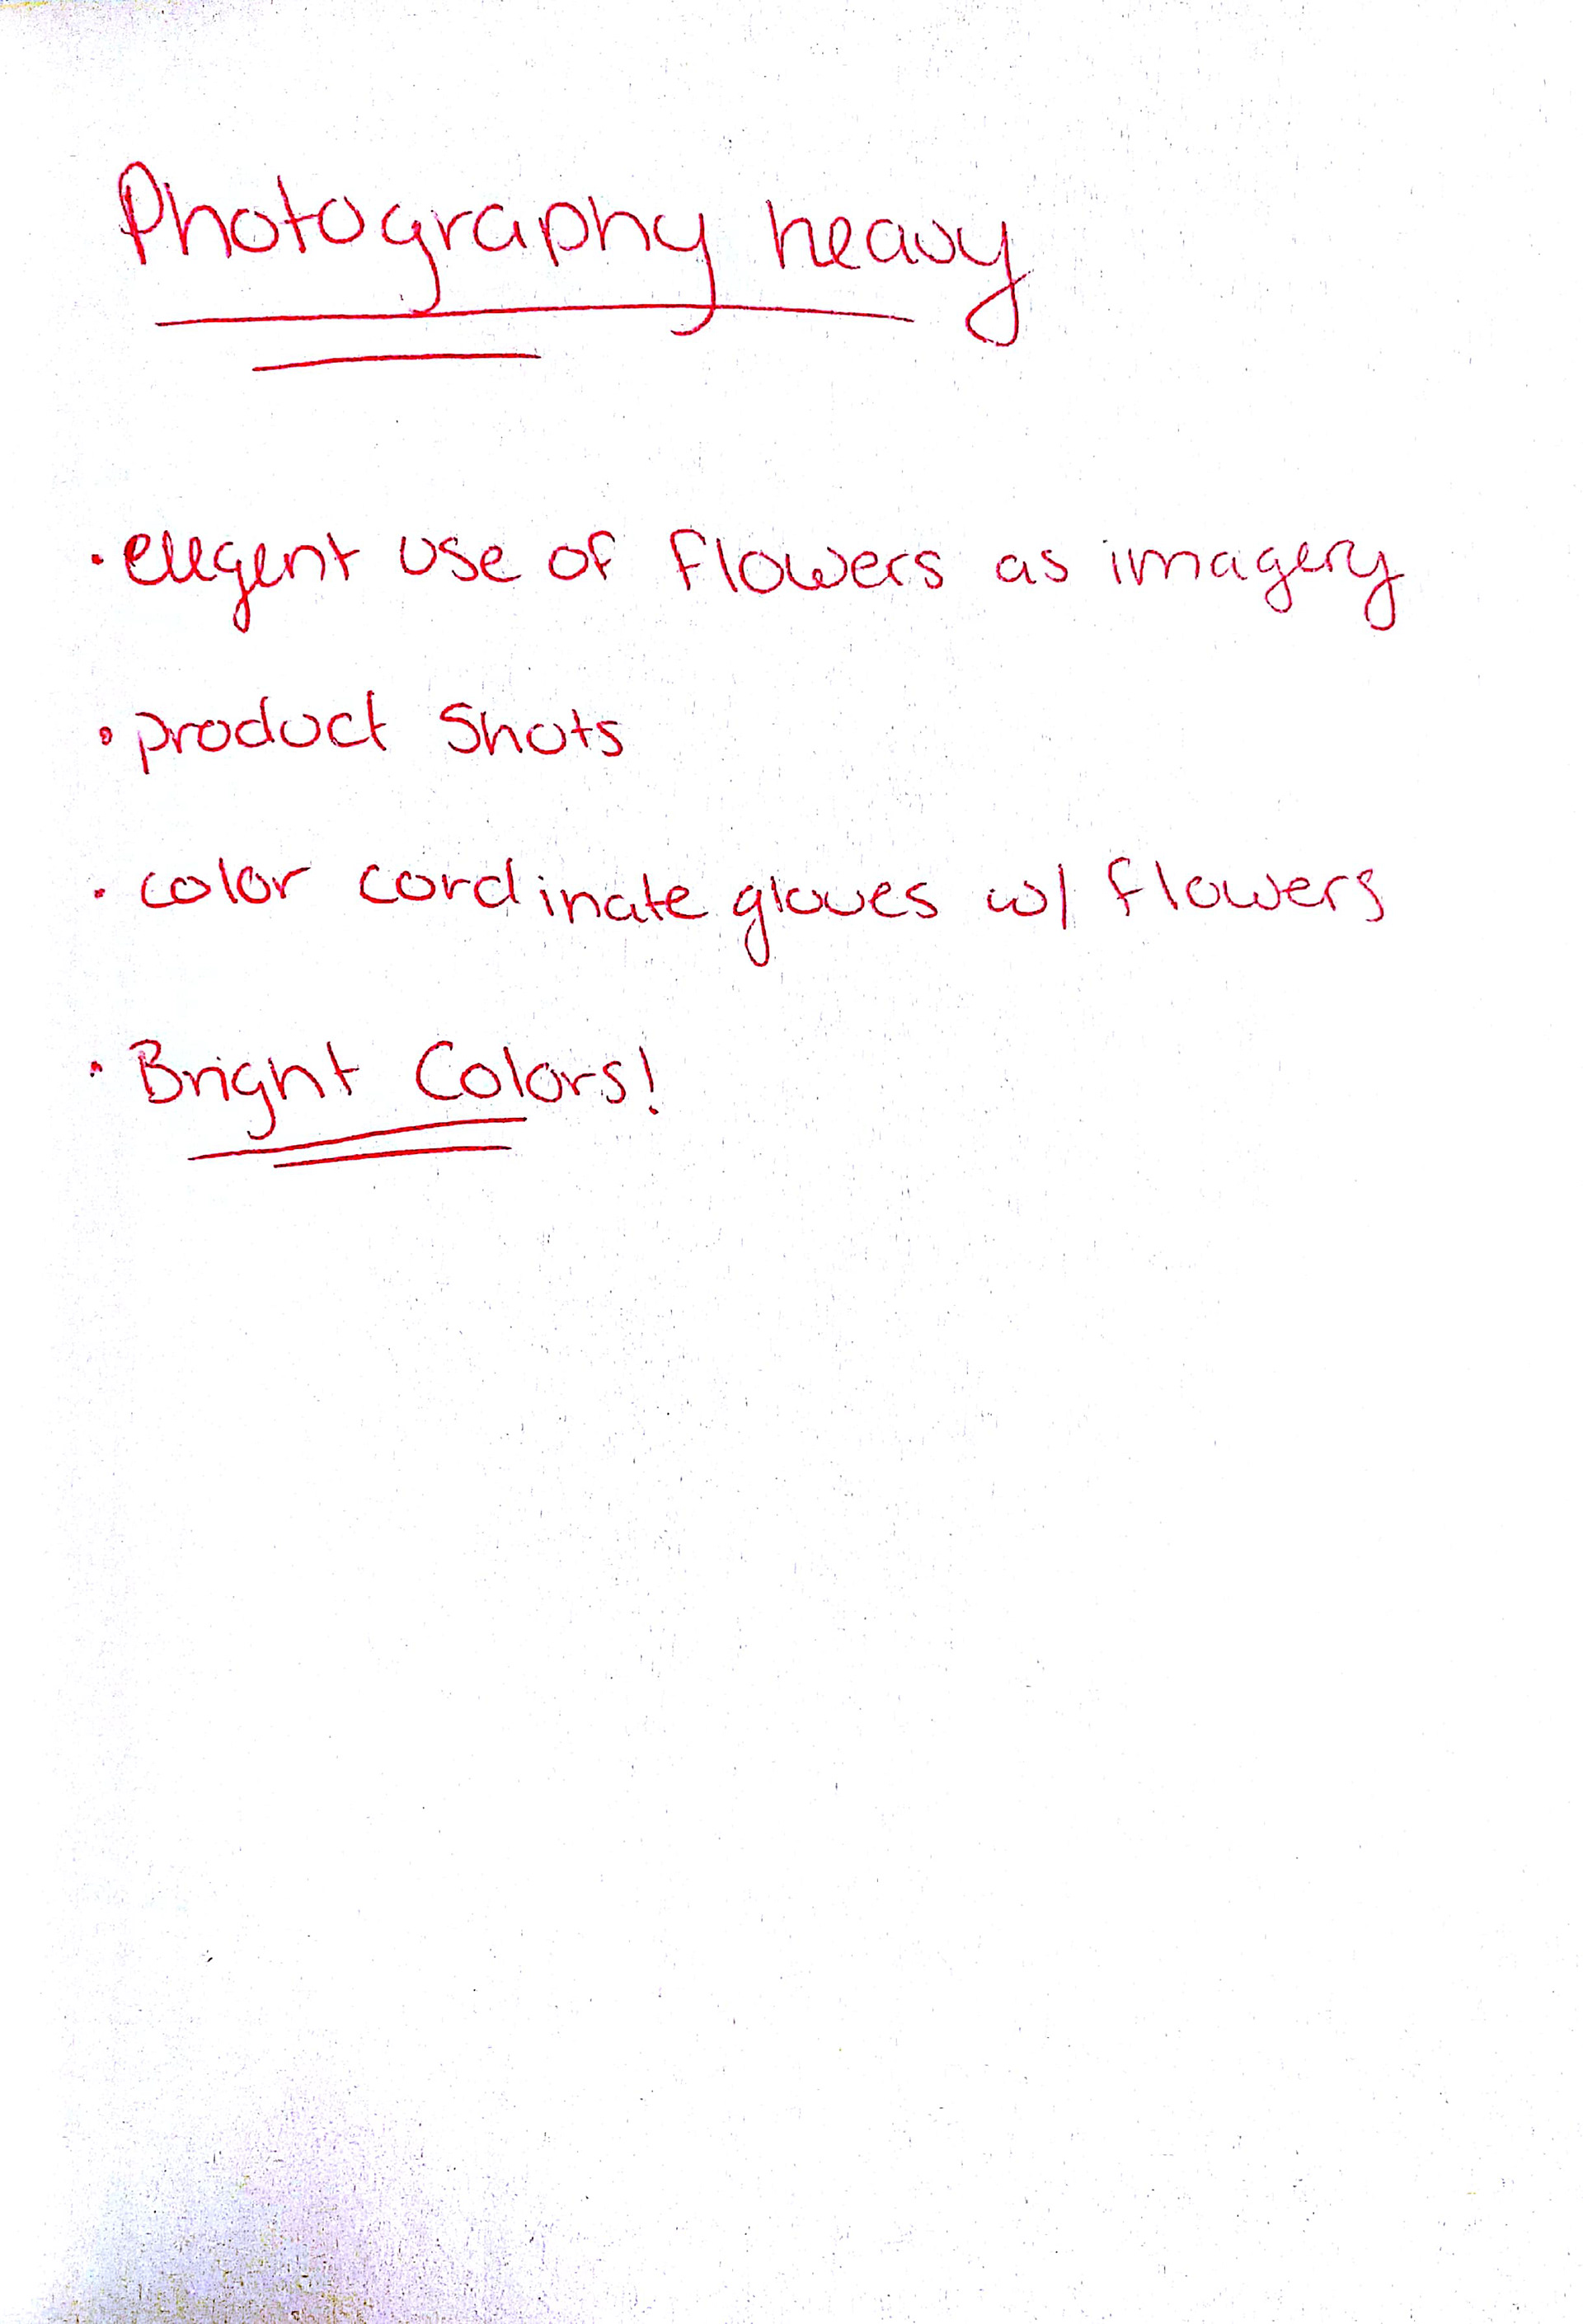 Photography heavy
• elegent use of flowers as imagery
• product shots
• color cordinate gloves w/ flowers
• Bright Colors!